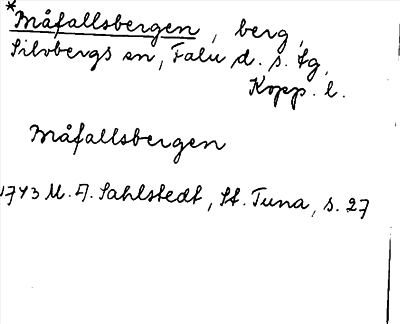 *Måfallsbergen, berg,
Silvbergs sn, Falu d. s. fg,
Kopp. l.
Måfallsbergen
1743 M. A. Sahlstedt, St. Tuna, s. 27